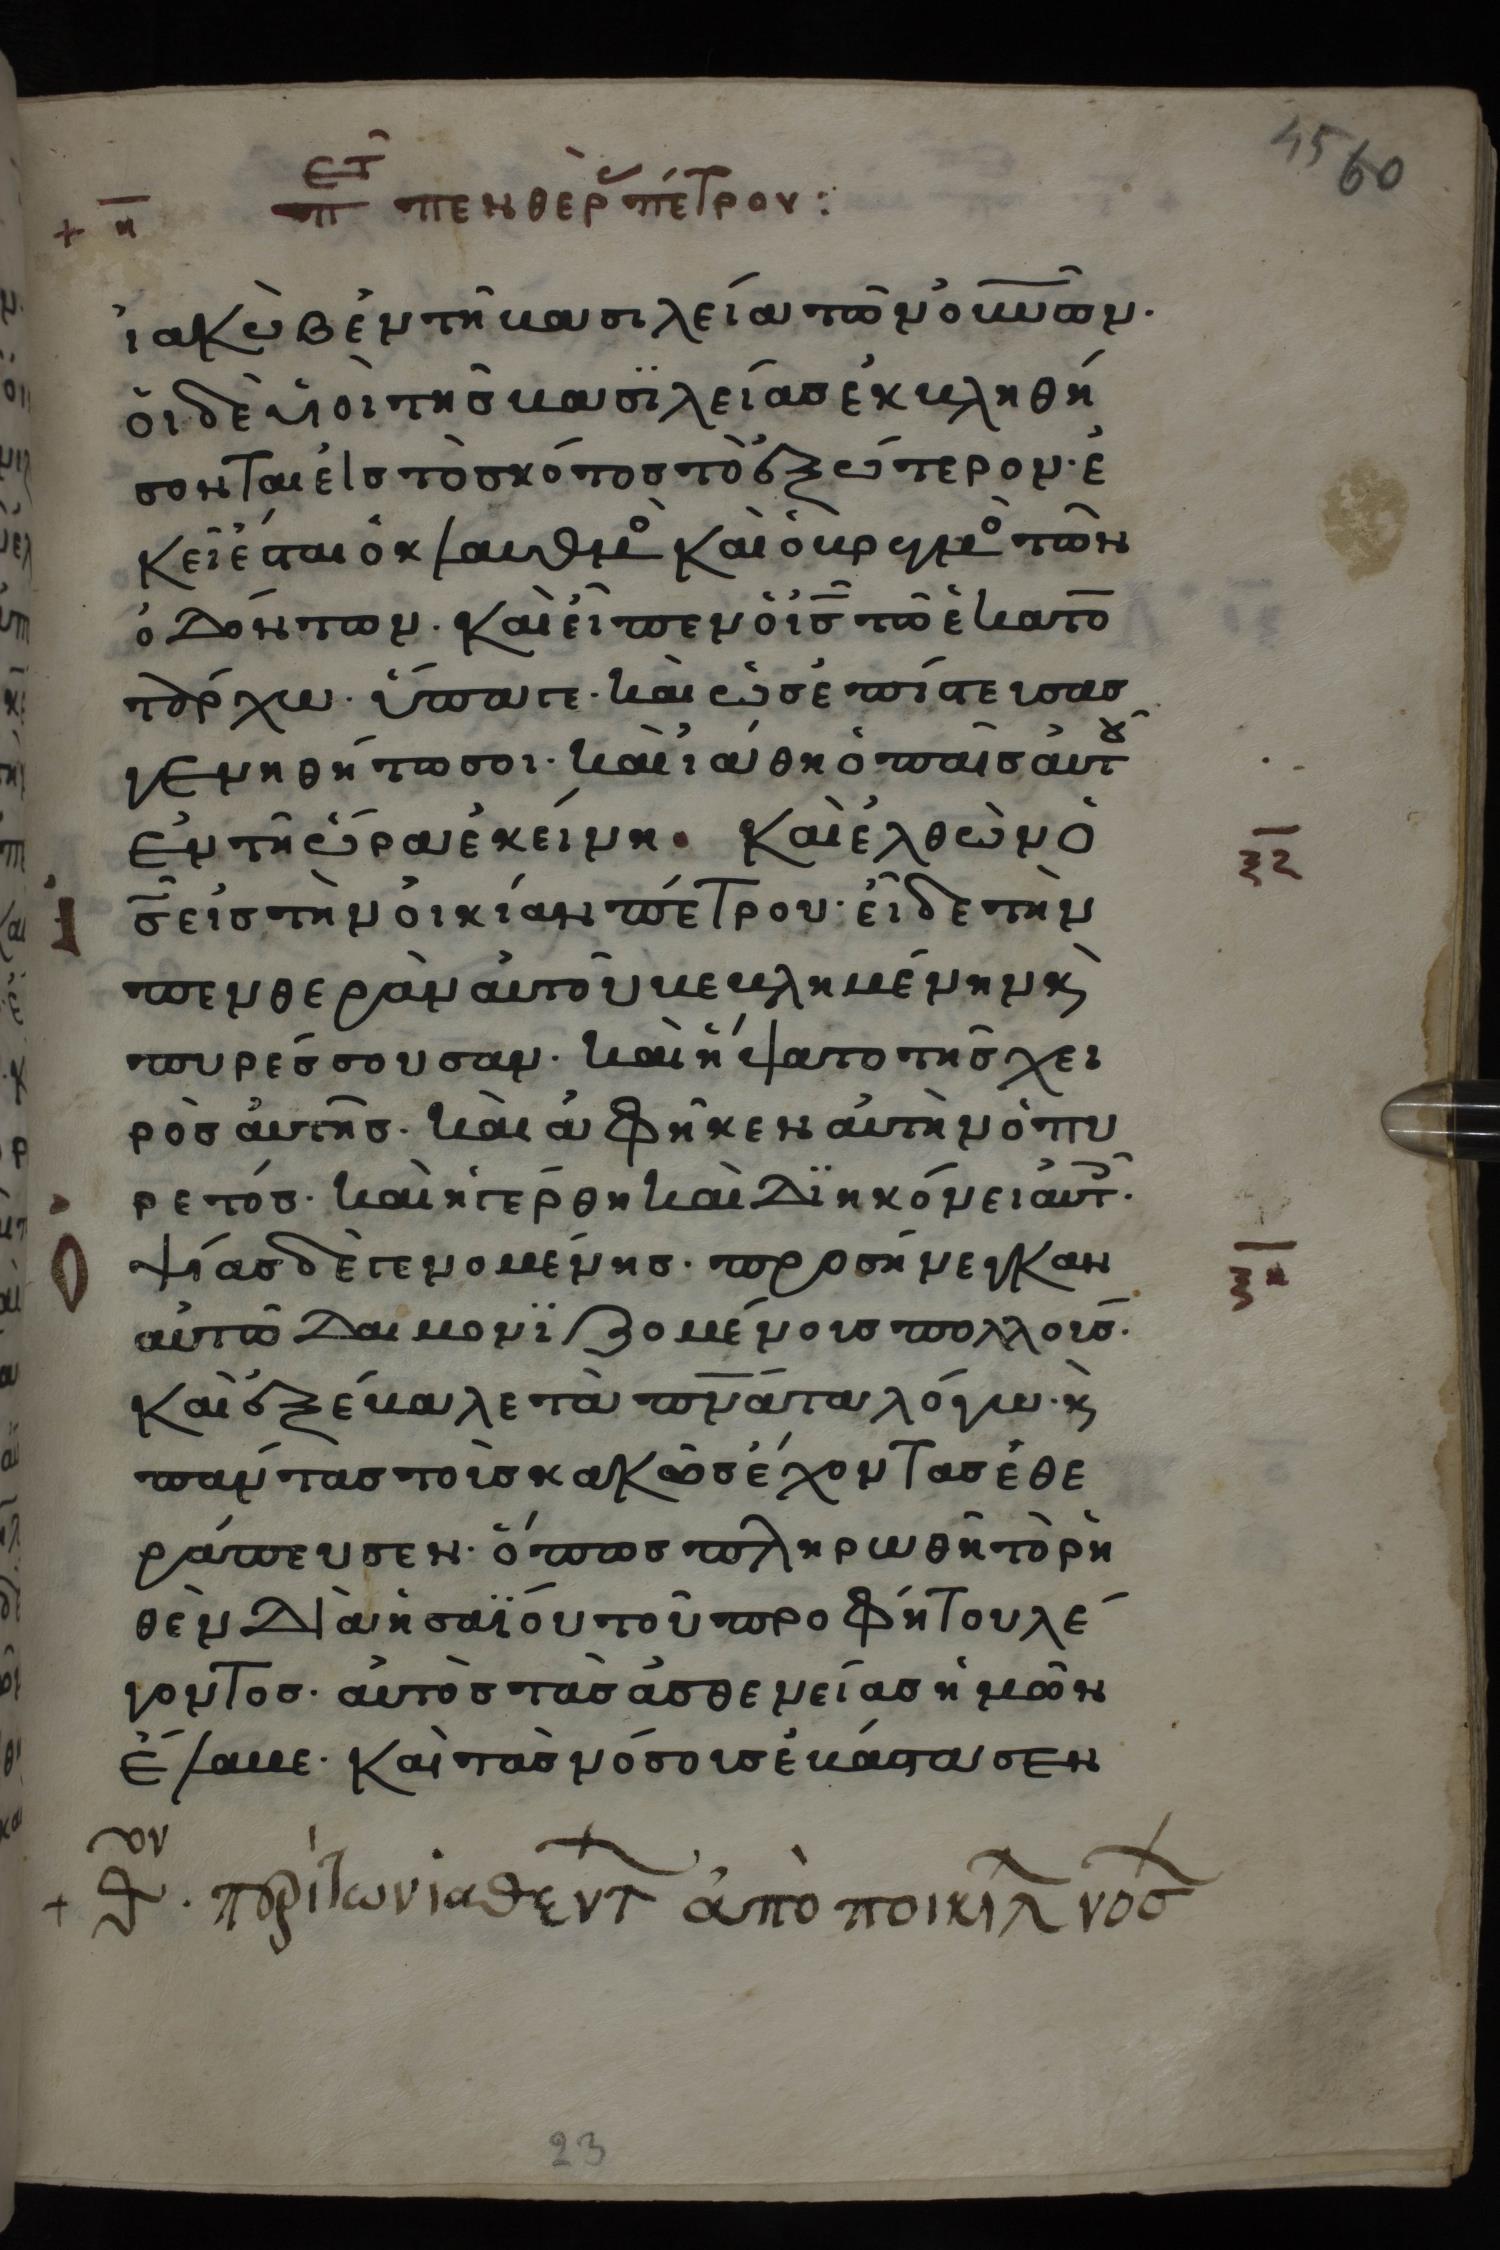 45 60
+ η πενθερ πέτρου:
ἰακὼβ ἐν τῆ βασιλεία τῶν οὐνῶν·
ὁι δὲ υἱοὶ τῆς βασϊλείας ἐκβληθή
σονται εἰς τὸ σκότος τὸ ἐξώτερον· ἐ
κεῖ ἔσται ὁ κλαυθμὸ καὶ ὁ βρυγμὸ τῶν
ὀδόντων· καὶ εἶπεν ὁ ις τῶ ἑκατο
τάρχω· ὕπαγε· καὶ ὡς ἐπίστευσας
γενηθήτω σοι· καὶ ἰάθη ὁ παῖς αὐτοῦ
ἐν τῆ ὥρα ἐκείνη· Καὶ ἐλθὼν ὁ
ις εἰς τὴν οἰκίαν πέτρου· εἶδε τὴν
πενθερὰν αὐτοῦ βεβλημένην κὶ
πυρέσσουσαν· καὶ ἥψατο τῆς χει
ρὸς αὐτῆς· καὶ ἀφῆκεν αὐτὴν ὁ πυ
ρετός· καὶ ἠγέρθη καὶ δϊηκόνει αὐτ·
ψίας δὲ γενομένης· προσήνεγκαν
αὐτῶ δαιμονϊζομένους πολλούς·
καὶ ἐξέβαλε τὰ πνάτα λόγω· κὶ
πάντας τοὺς κακῶς ἔχοντας ἐθε
ράπευσεν· ὅπως πληρωθῆ τὸ ρη
θὲν διὰ ἡσαϊου τοῦ προφήτου λέ
γοντος· αὐτὸς τὰς ἀσθενείας ἡμῶν
ἔλαβε· καὶ τὰς νόσους ἐβάστασεν
+ θον · περὶ τῶν ἰαθέντ ἀπὸ ποικίλ νόσ
ξζ
ξη
23